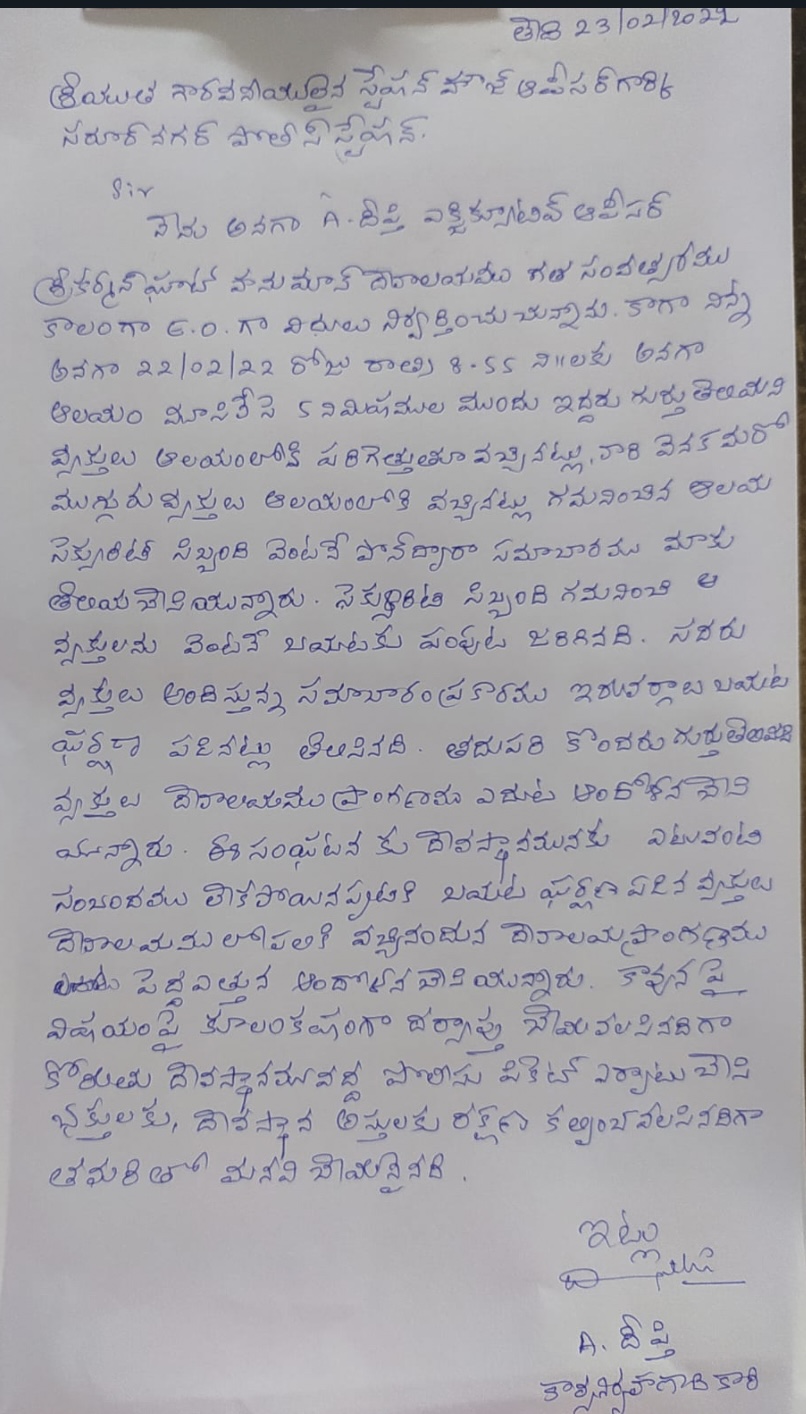 తేది 23/02/2022
శ్రీయుత గౌరవనీయులైన స్టేషన్ హౌజ్ ఆఫీసర్ గారికి
సరూర్ నగర్ పోలీస్ స్టేషన్.
Sir
నేను అనగా A. దీప్తి ఎక్జిక్యూటివ్ ఆఫీసర్
శ్రీకర్మన్ ఘాట్ హనుమాన్ దేవాలయము గత సంవత్సరము
కాలంగా E.O. గా విధులు నిర్వర్తించుచున్నాను. కాగా నిన్న
అనగా 22/02/22 రోజు రాత్రి 8.55 ని॥లకు అనగా
ఆలయం మూసివేసే 5 నిమిషముల ముందు ఇద్దరు గుర్తు తెలియని
వ్యక్తులు ఆలయంలోకి పరిగెత్తుతూ వచ్చినట్లు, వారి వెనక మరో
ముగ్గురు వ్యక్తులు ఆలయంలోకి వచ్చినట్లు గమనించిన ఆలయ
సెక్యురిటీ సిబ్బంది వెంటనే ఫోన్ ద్వారా సమాచారము మాకు
తెలియచేసియున్నారు. సెక్యురిటి సిబ్బంది గమనించి ఆ
వ్యక్తులను వెంటనే బయటకు పంపుట జరిగినది. సదరు
వ్యక్తులు అందిస్తున్న సమాచారం ప్రకారము ఇరువర్గాలు బయట
ఘర్షణ పడినట్లు తెలిసినది. తదుపరి కొందరు గుర్తుతెలియని
వ్యక్తులు దేవాలయము ప్రాంగణము ఎదుట ఆందోళన చేసి
యున్నారు. ఈ సంఘటన కు దేవస్థానమునకు ఎటువంటి
సంబందము లేకపోయినప్పటికి బయట ఘర్షణ పడిన వ్యక్తులు
దేవాలయము లోపలికి వచ్చినందున దేవాలయప్రాంగణము
పెద్ద ఎత్తున ఆందోళన చేసియున్నారు. కావున పై
విషయంపై కూలంకషంగా దర్యాప్తు చేయవలసినదిగా
కోరుతు దేవస్థానమువద్ద పోలీసు పికెట్ ఏర్పాటు చేసి
భక్తులకు, దేవస్థాన ఆస్తులకు రక్షణ కల్పించవలసినదిగా
తమరితో మనవి చేయనైనది.
ఇట్లు
A. దీప్తి
కార్యనిర్వహణాధికారి